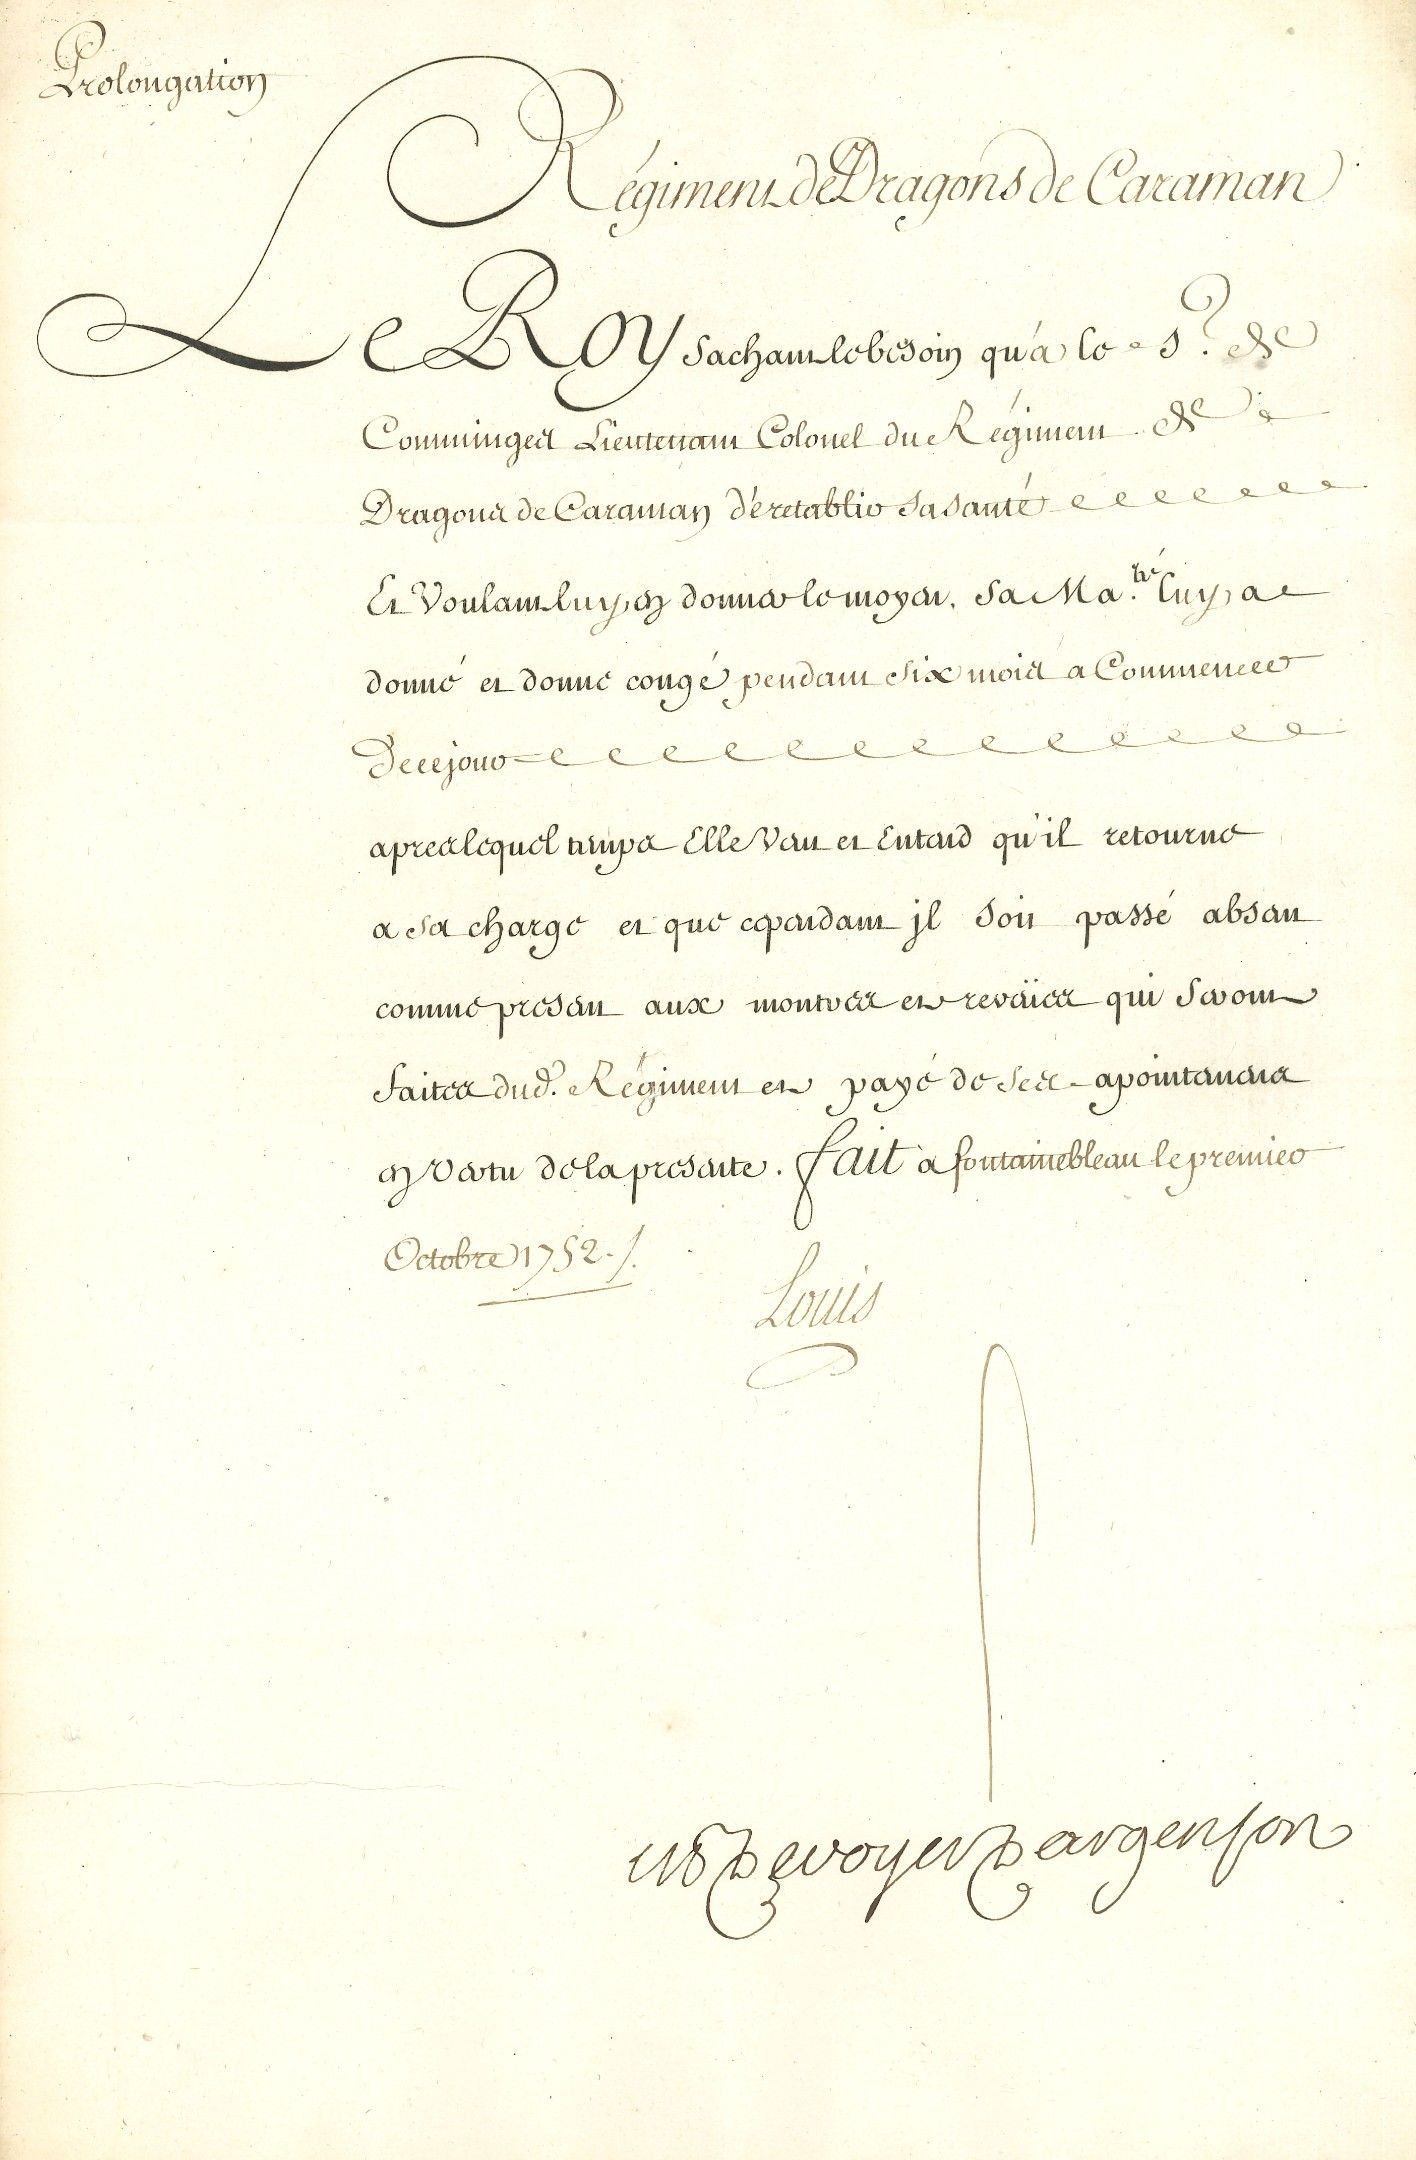 Prolongation
Régiment de Dragons de Caraman
Le Roy sachant le besoin qu'a le Sr. de
Comminges Lieutenant Colonel du Régiment de
Dragons de Caraman de retablir sa santé
Et Voulant luy en donner le moyen, Sa Ma.té luy a
donné et donne congé pendant six mois a Commencer
De ce jour
apres lequel temps Elle Veut et Entend qu'il retourne
a sa charge et que cependant jl soit passé absent
comme present aux montres et reveües qui seront
faites dud. Régiment et payé de ses apointemens
en vertu de la presente. fait a fontainebleau le premier
Octobre 1752 ./.
Louis
M P De voyer D argenson